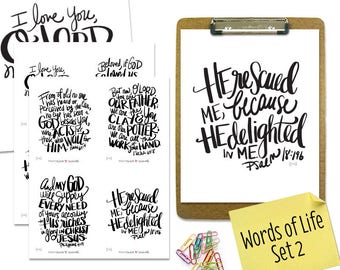 I love you,
O LORD
I love you,
O LORD
Beloved, if GOD
so loved us
From of old no one
has heard or
perceived by the ear,
no eye has seen a
GOD besides you,
who ACTS for
those who WAIT for
HIM
But now O LORD
you are
OUR FATHER,
WE are the
CLAY & YOU are
our POTTER;
we are all the
WORK of your
HAND
And MY GOD
will supply
EVERY NEED
of yours according
to HIS RICHES
in glory in CHRIST
JESUS
HE rescued
ME, because
HE delighted
IN ME
Psalm
HE rescued
ME, because
HE delighted
IN ME
Psalm 18:19b
Words of Life
Set 2